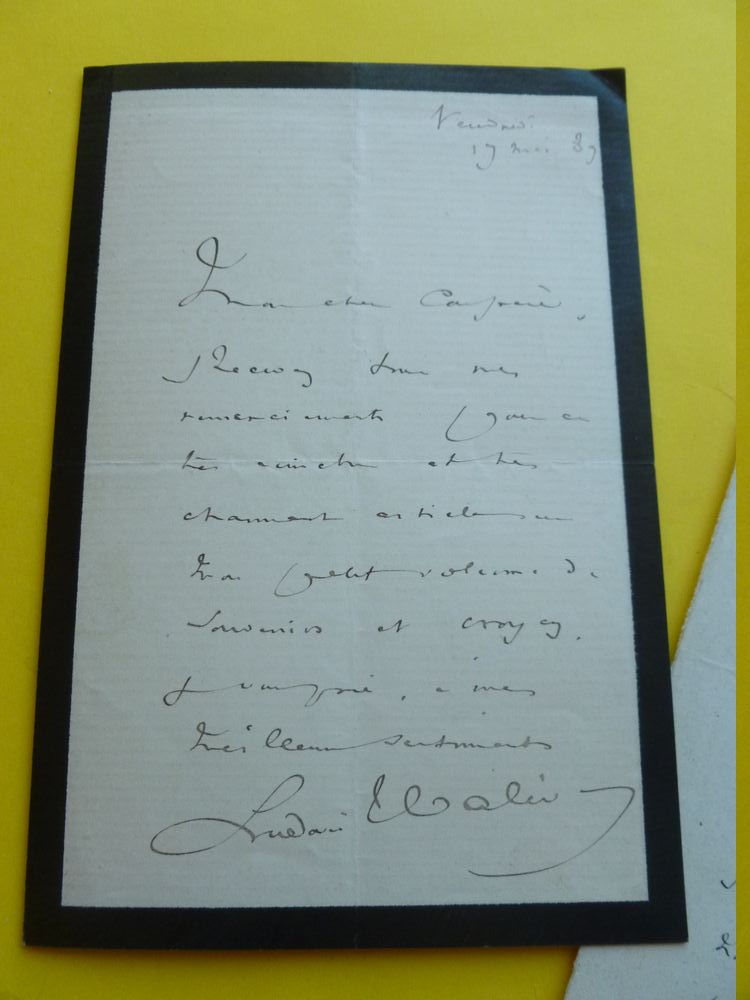 Vendredi
17 mai 89
Mon cher Confrère,
Recevez tous mes
remerciments pour ce
très aimable et très
charmant article sur
mon petit volume de
Souvenirs et croyez,
je vous prie, à mes
meilleurs sentiments
Ludovic Halévy